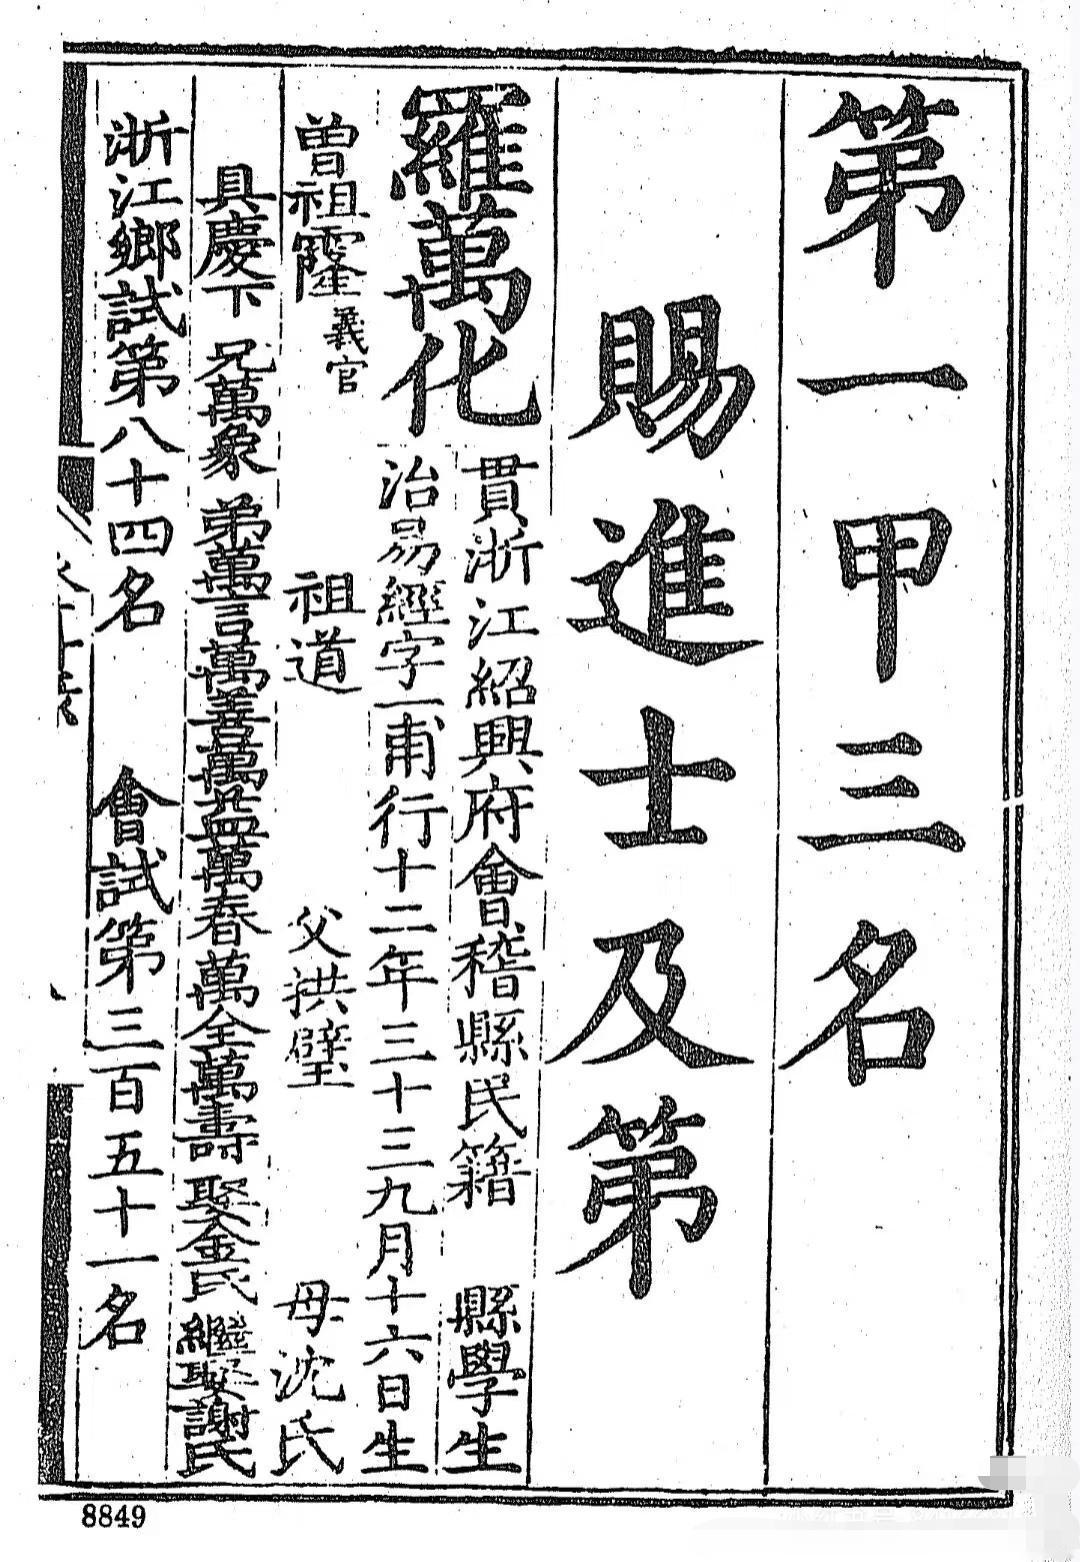 第一甲三名
賜進士及第
羅萬化
貫浙江紹興府會稽縣民籍 縣學生
治易經字一甫行十二年三十三九月十六日生
曾祖霳義官 祖道 父拱璧 母沈氏
具慶下 兄萬象 弟萬言萬善萬益萬春萬全萬壽 娶金氏 繼娶謝氏
浙江鄉試第八十四名 會試第三百五十一名
8849